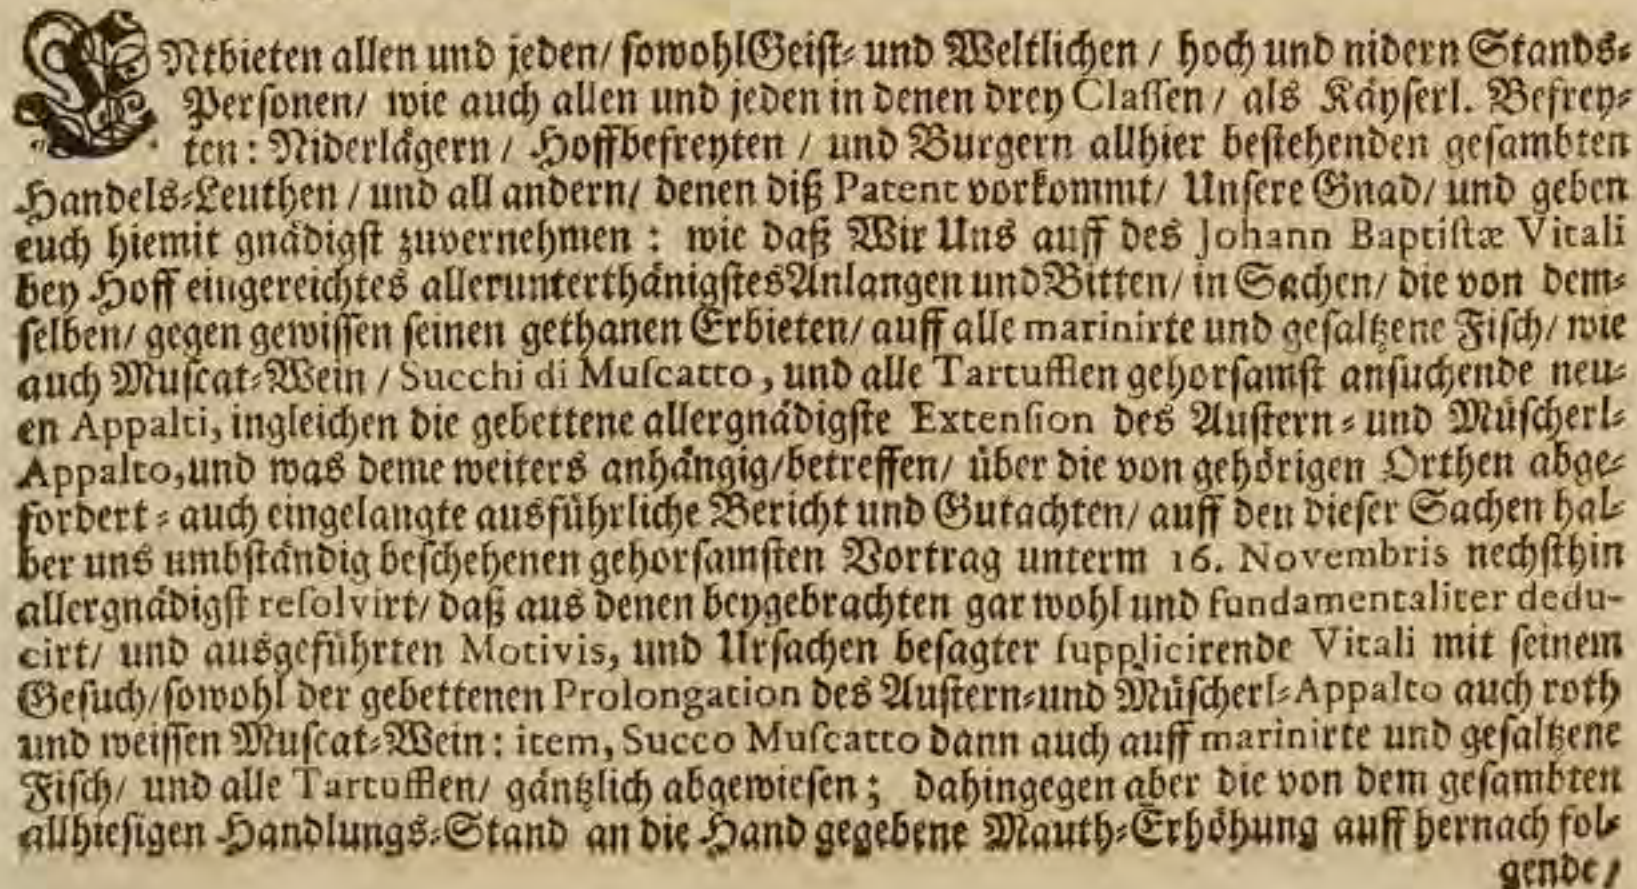 ENtbieten allen und jeden/ sowohl Geist- und Weltlichen / hoch und nidern Stands-
Personen/ wie auch allen und jeden in denen drey Classen / als Käyserl. Befrey-
ten: Niderlägern / Hoffbefreyten / und Burgern allhier bestehenden gesambten
Handels-Leuthen / und all andern/ denen diß Patent vorkommt/ Unsere Gnad/ und geben
euch hiemit gnädigst zuvernehmen : wie daß Wir Uns auff des Johann Baptistæ Vitali
bey Hoff eingereichtes allerunterthänigstes Anlangen und Bitten/ in Sachen/ die von dem-
selben/ gegen gewissen seinen gethanen Erbieten/ auff alle marinirte und gesaltzene Fisch/ wie
auch Muscat-Wein / Succhi di Muscatto, und alle Tartufflen gehorsamst ansuchende neu-
en Appalti, ingleichen die gebettene allergnädigste Extension des Austern- und Müscherl-
Appalto, und was deme weiters anhängig/ betreffen/ über die von gehörigen Orthen abge-
fordert- auch eingelangte ausführliche Bericht und Gutachten/ auff den dieser Sachen hal-
ber uns umbständig beschehenen gehorsamsten Vortrag unterm 16. Novembris nechsthin
allergnädigst resolvirt/ daß aus denen beygebrachten gar wohl und fundamentaliter dedu-
cirt/ und ausgeführten Motivis, und Ursachen besagter supplicirende Vitali mit seinem
Gesuch/ sowohl der gebettenen Prolongation des Austern- und Müscherl-Appalto auch roth
und weissen Muscat-Wein : item, Succo Muscatto dann auch auff marinirte und gesaltzene
Fisch/ und alle Tartufflen/ gäntzlich abgewiesen ; dahingegen aber die von dem gesambten
allhiesigen Handlungs-Stand an die Hand gegebene Mauth-Erhöhung auff hernach fol-
gende /